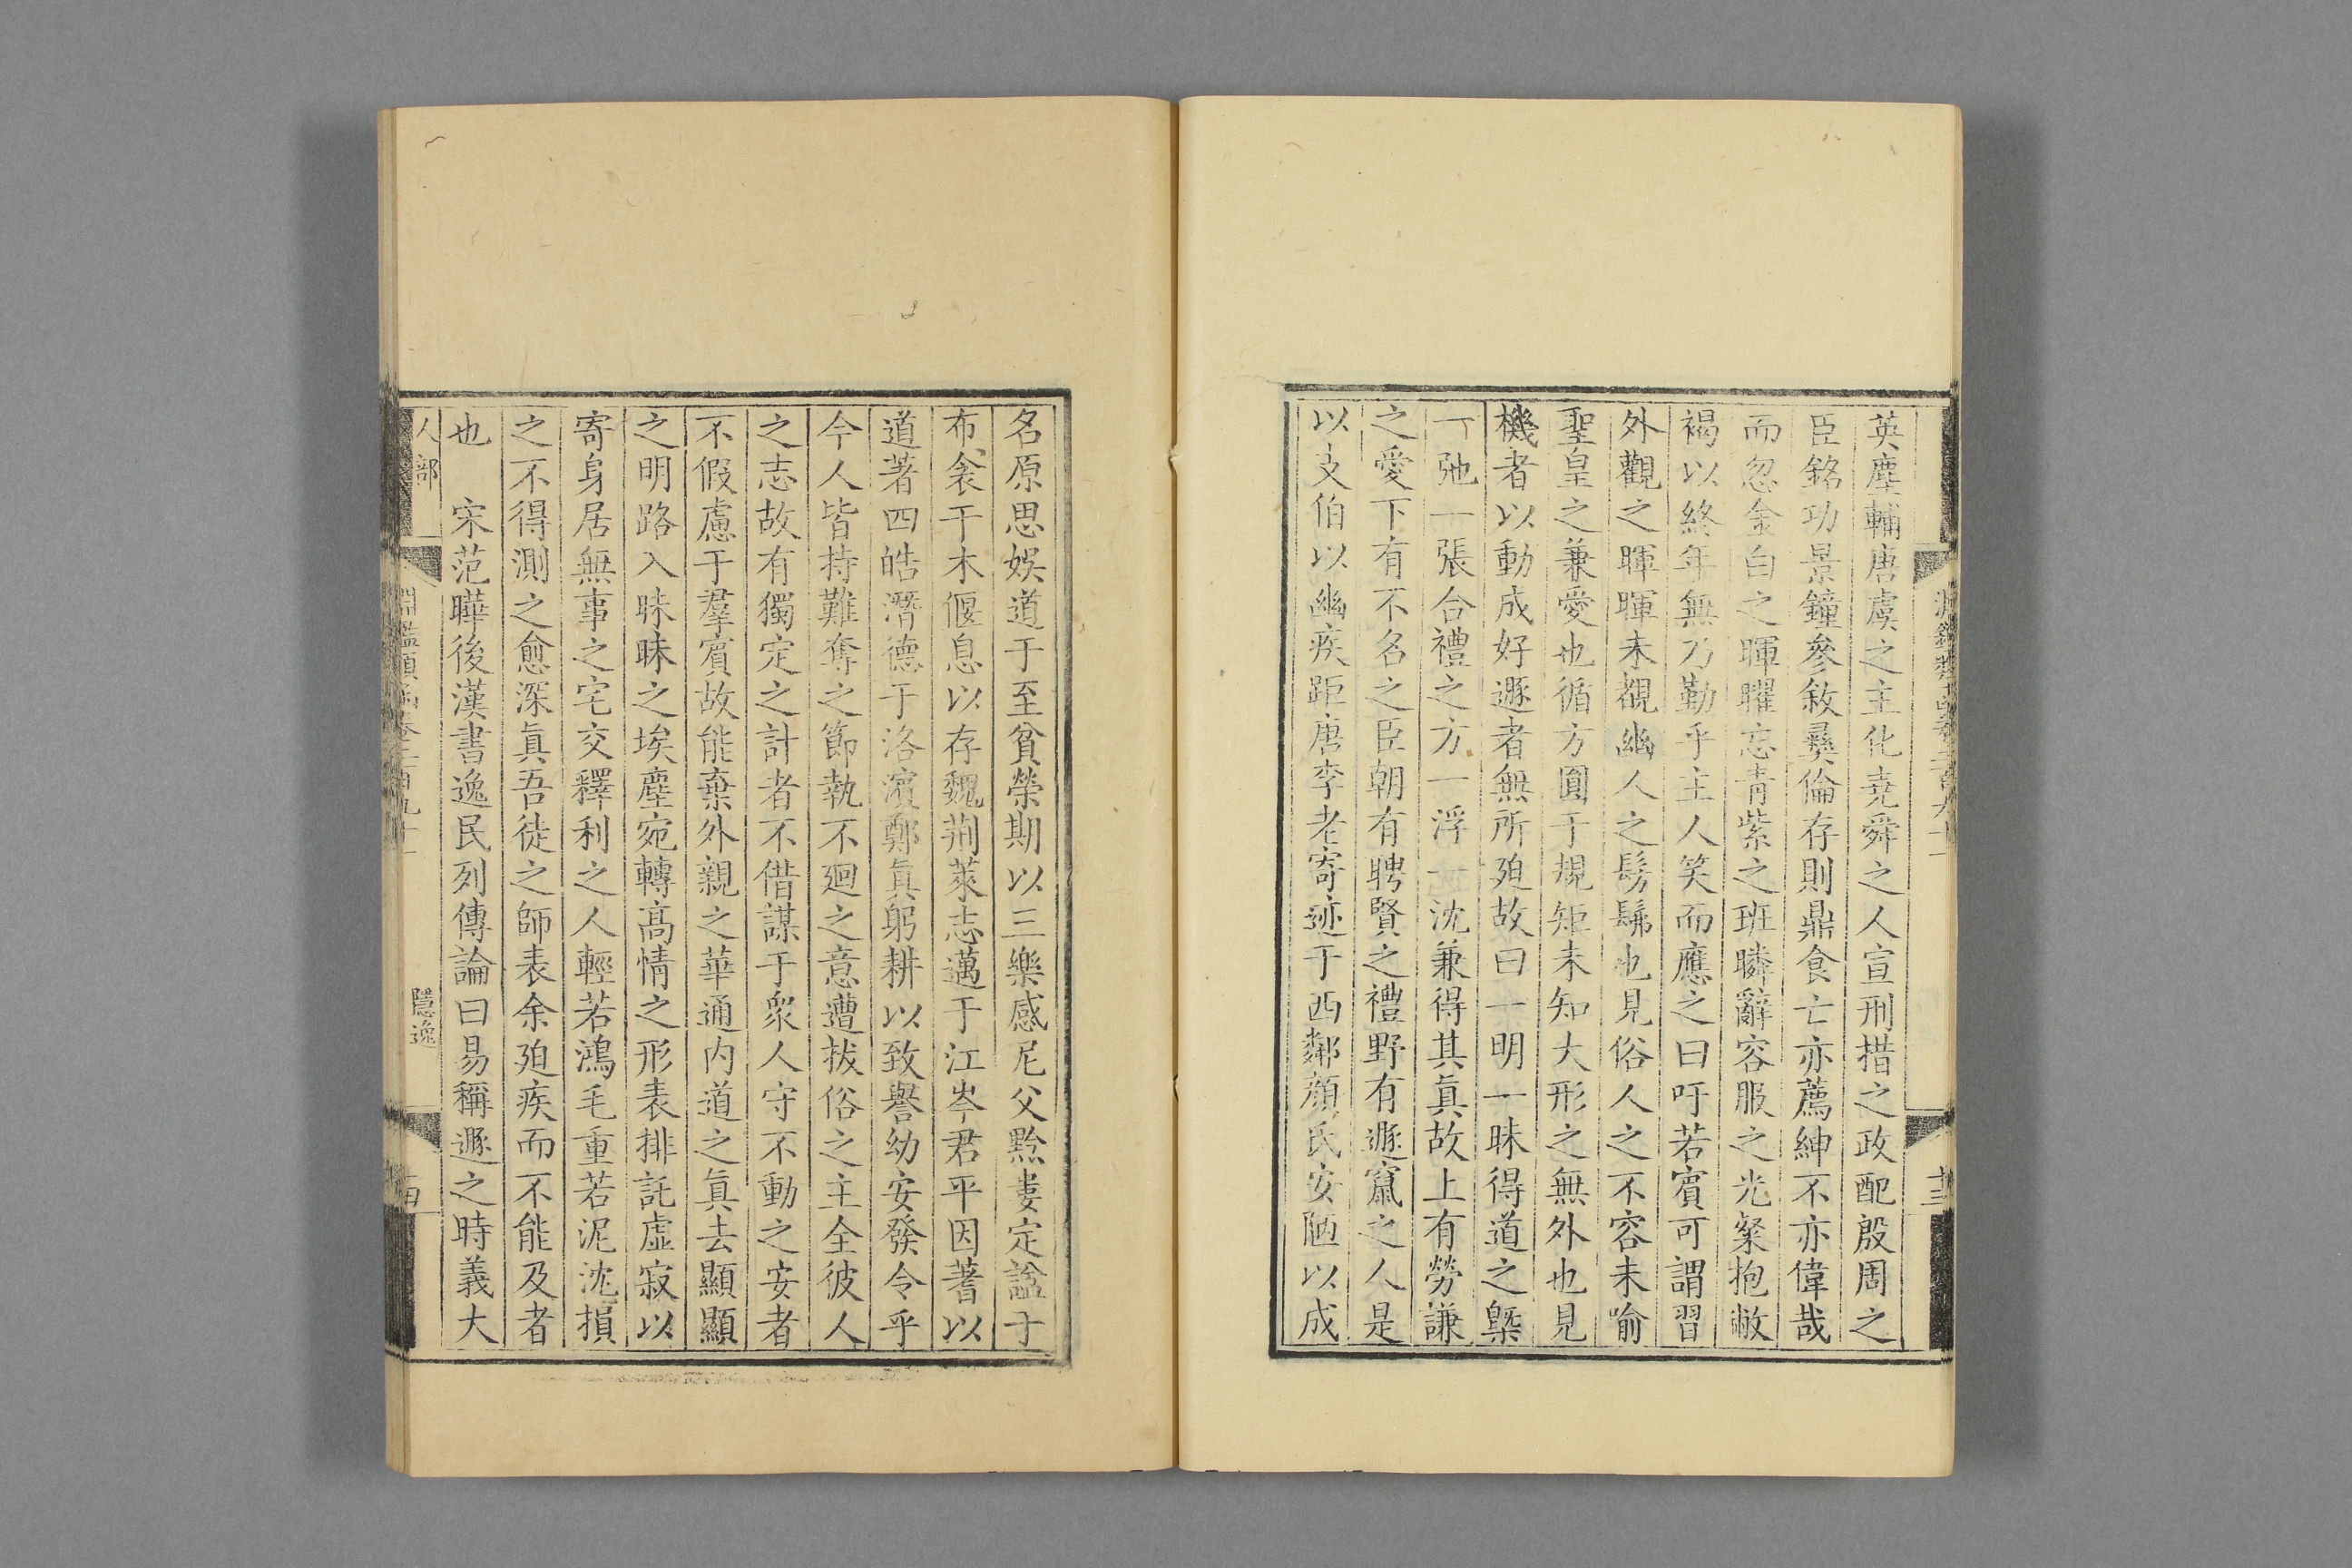 英塵輔唐虞之主化堯舜之人宣刑措之政配殷周之
臣銘功景鐘參敘彝倫存則鼎食亡亦薦紳不亦偉哉
而忽金白之暉曜忘青紫之班瞵辭容服之光粲抱敝
褐以終年無乃勤乎主人笑而應之曰吁若賓可謂習
外觀之暉暉未覩幽人之髣髴也見俗人之不容未喻
聖皇之兼愛也循方圓于規矩未知大形之無外也見
機者以動成好遯者無所廹故曰一明一昧得道之槩
一弛一張合禮之方一浮一沈兼得其眞故上有勞謙
之愛下有不名之臣朝有聘賢之禮野有遯竄之人是
以支伯以幽疾距唐李老寄迹于西鄰顔氏安陋以成
名原思娛道于至貧榮期以三樂感尼父黔婁定諡于
布衾干木偃息以存魏荊萊志邁于江岑君平因蓍以
道著四皓潛德于洛濱鄭眞躬耕以致譽幼安發令乎
今人皆持難奪之節執不廻之意遭拔俗之主全彼人
之志故有獨定之計者不借謀于衆人守不動之安者
不假慮于羣賓故能棄外親之華通内道之眞去顯顯
之明路入昧昧之埃塵宛轉高情之形表排託虛寂以
寄身居無事之宅交釋利之人輕若鴻毛重若泥沈損
之不得測之愈深眞吾徒之師表余廹疾而不能及者
也　宋范曄後漢書逸民列傳論曰易稱遯之時義大
人部
隱逸